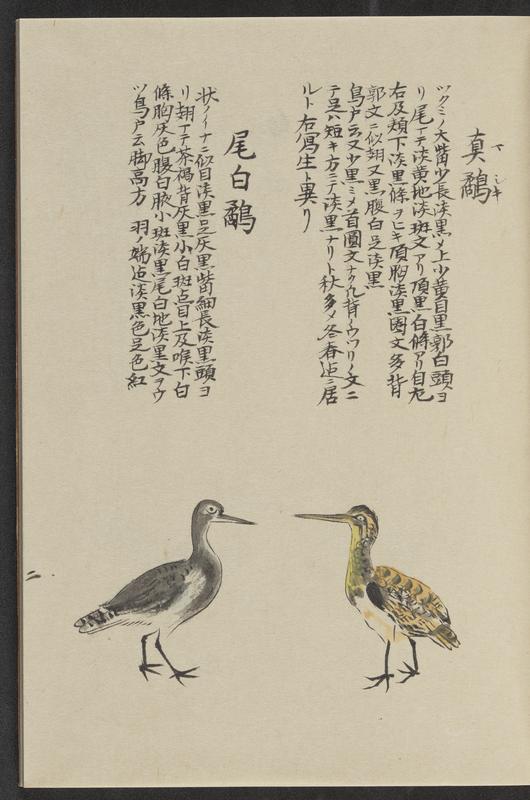 真鷸
マシキ
ツクミノ大觜少長淡黒〆上少黄目黒郭白頭ヨ
リ尾ニテ淡黄地淡斑文アリ頂黒白條アリ目尤
右及頬下淡黒條ヲヒキ頂胸淡黒圈文多背
郭文ニ似翅又黒腹白足淡黒
鳥戸云又少黒ミ〆首圓文ナク
テ足ハ短キ方ニテ淡黒ナリト秋多〆冬春迠ニ居
ルト右寫生ト異リ
尾白鷸
状ノイナニ似目淡黒足灰黒觜細長淡黒頭ヨ
リ翅ニテ茶褐背灰黒小白斑点目上及喉下白
條胸灰色腹白腋小斑淡黒尾白地淡黒文アウ
ツ鳥戸云脚高方 羽ノ端迠淡黒色足色紅
二